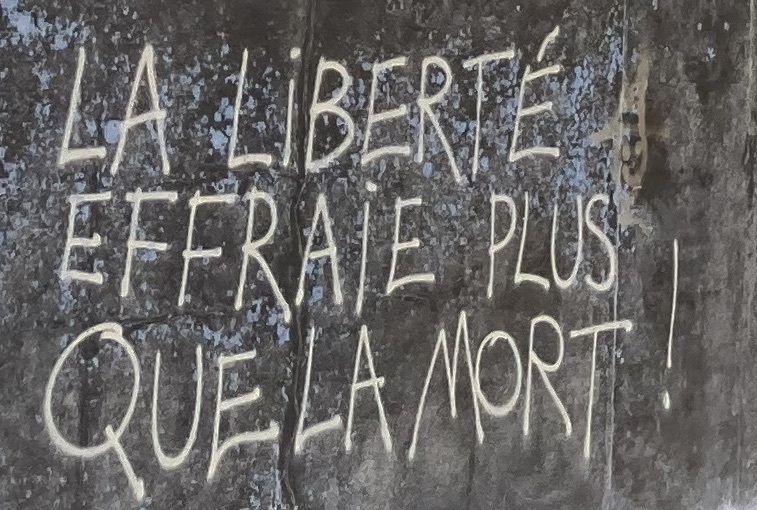 LA LiBERTÉ
EFFRAiE PLUS
QUE LA MORT !